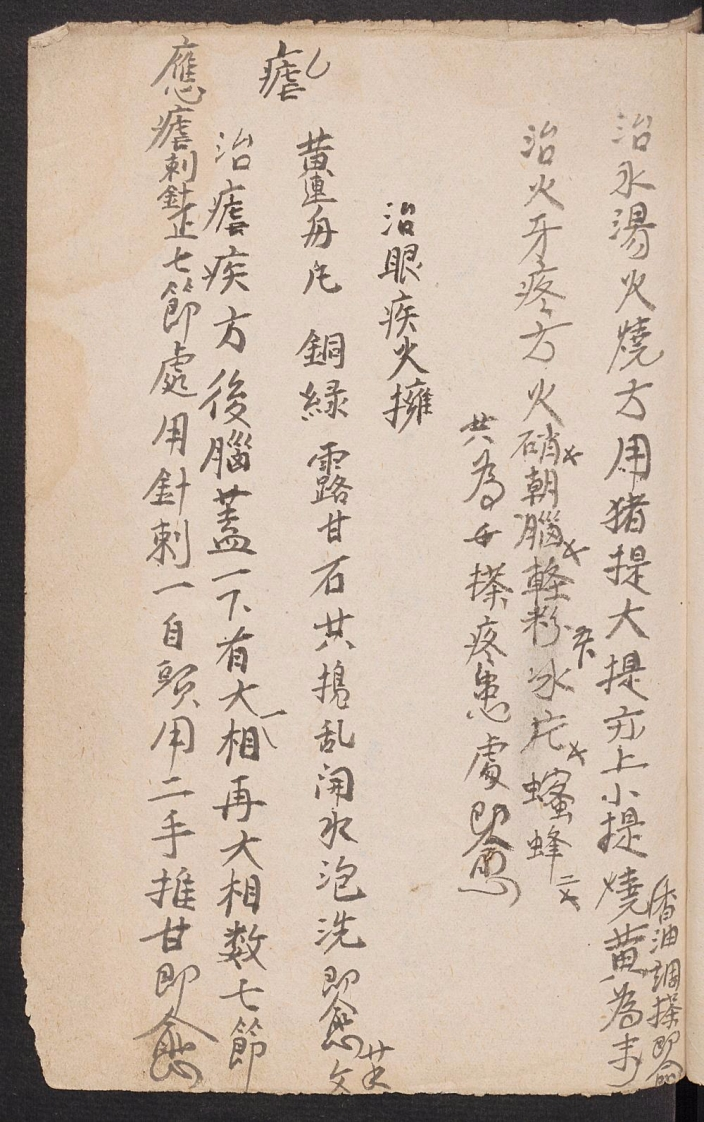 治水湯火燒方用猪提大提亦上小提燒黄為末
香油調搽即愈
治火牙疼方火硝朝腦輕粉冰片蠟蜂
共為末搽疼患處即愈
治眼疾火擁
黄連 銅緑 露甘石共搗乱開水泡洗即愈
瘧
治瘧疾方後腦蓋一下有大相再大相数七節
應瘧刺針正七節處用針刺一自頭用二手推甘即愈